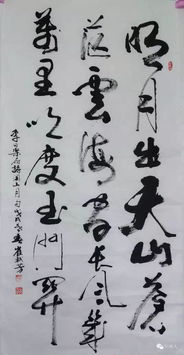 明月出天山蒼
茫雲海間長風幾
萬里吹度玉門關
李白樂府詩關山月句戊戌